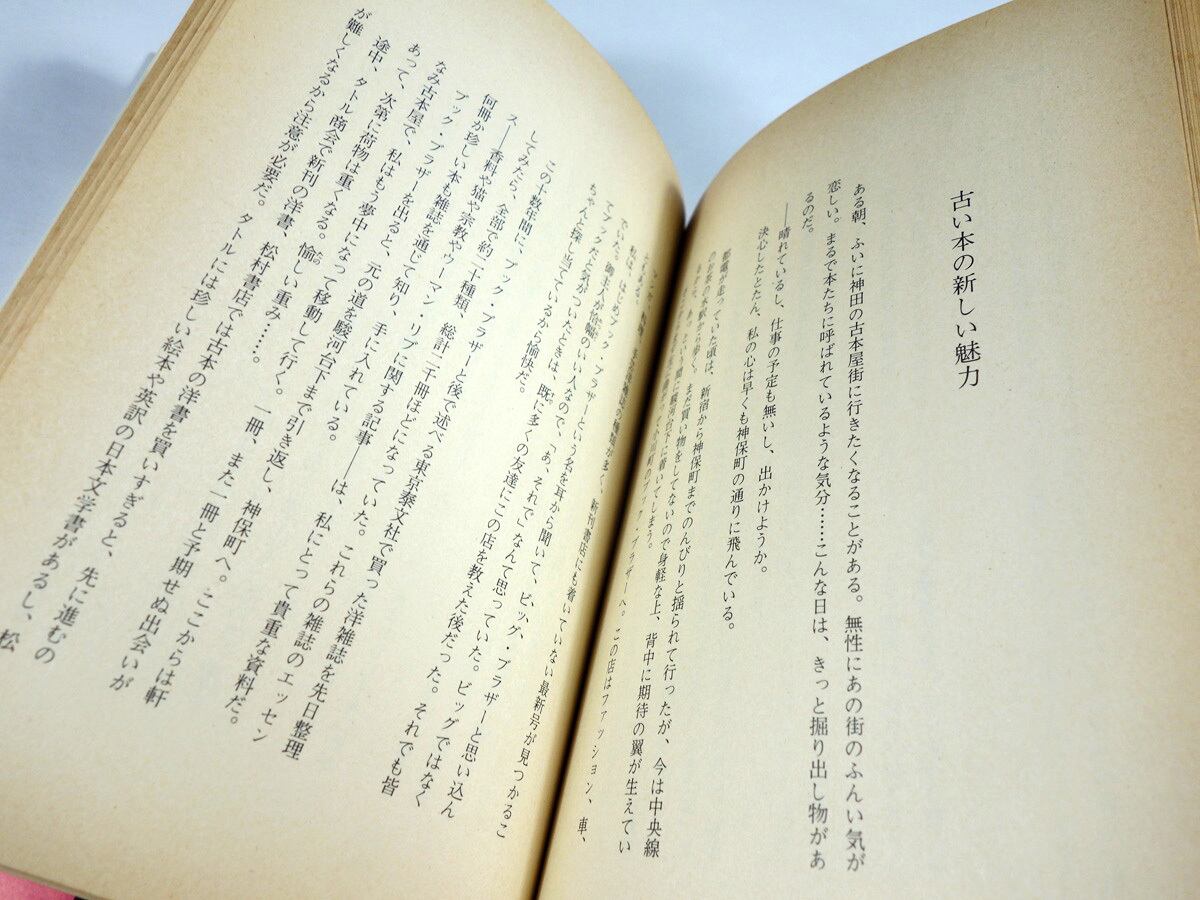 古い本の新しい魅力
ある朝、ふいに神田の古本屋街に行きたくなることがある。無性にあの街のふんい気が
恋しい。まるで本たちに呼ばれているような気分……こんな日は、きっと掘り出し物があ
るのだ。
――晴れているし、仕事の予定も無いし、出かけようか。
決心したとたん、私の心は早くも神保町の通りに飛んでいる。
都電が走っていた頃は、新宿から神保町までのんびりと揺られて行ったが、今は中央線
のお茶の水駅から歩く。まだ買い物をしてないので身軽な上、背中に期待の翼が生えてい
るから、あっという間に駿河台下に着いてしまう。
ブック・ブラザーへ。この店はファッション、車、
新刊書店にも着いていない最新号が見つかるこ
私は、はじめブック・ブラザーという名を耳から聞いて、ビッグ・ブラザーと思い込ん
でいた。御主人が恰幅のいい人なので、「あ、それで」なんて思っていた。ビッグではなく
てブックだと気がついたときは、既に多くの友達にこの店を教えた後だった。それでも皆
ちゃんと探し当てているから愉快だ。
この十数年間に、ブック・ブラザーと後で述べる東京泰文社で買った洋雑誌を先日整理
してみたら、全部で約二十種類、総計二千冊ほどになっていた。これらの雑誌のエッセン
ス――香料や猫や宗教やウーマン・リブに関する記事――は、私にとって貴重な資料だ。
何冊か珍しい本も雑誌を通じて知り、手に入れている。
ブック・ブラザーを出ると、元の道を駿河台下まで引き返し、神保町へ。ここからは軒
なみ古本屋で、私はもう夢中になって移動して行く。一冊、また一冊と予期せぬ出会いが
あって、次第に荷物は重くなる。愉しい重み……。
途中、タトル商会で新刊の洋書、松村書店では古本の洋書を買いすぎると、先に進むの
が難しくなるから注意が必要だ。タトルには珍しい絵本や英訳の日本文学書があるし、松